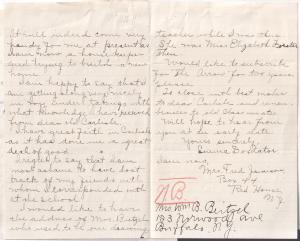 It will indeed come very
handy for me at present as
have now a home keep-
ing and trying to build a new
home.
I am happy to say that I
am getting along very nicely
in my undertakings with
what knowledge I have received
from dear old Carlisle.
I have great faith in Carlisle
as it has done me a great
deal of good.
I regret to say that have
most ashame to have lost
track of my friends with
whom I corresponded with
at the school.
I would like to have
the address of Mrs. Bertzel
who used to be our sewing
teacher while I was there
She was Miss Elizabeth Forster
then.
Would like to subscribe
for The Arrow for two years
please.
I close with best wishes
to dear Carlisle and remem-
brances to old classmates
Will hope to hear from
you at an early date.
Yours sincerely,
Emma Doctator
Mrs. Fred Jamison,
Box 44
Red House,
N.Y.
NB
Mrs. Wm B. Beitzel
133 Norwood ave
Buffalo, N.Y.